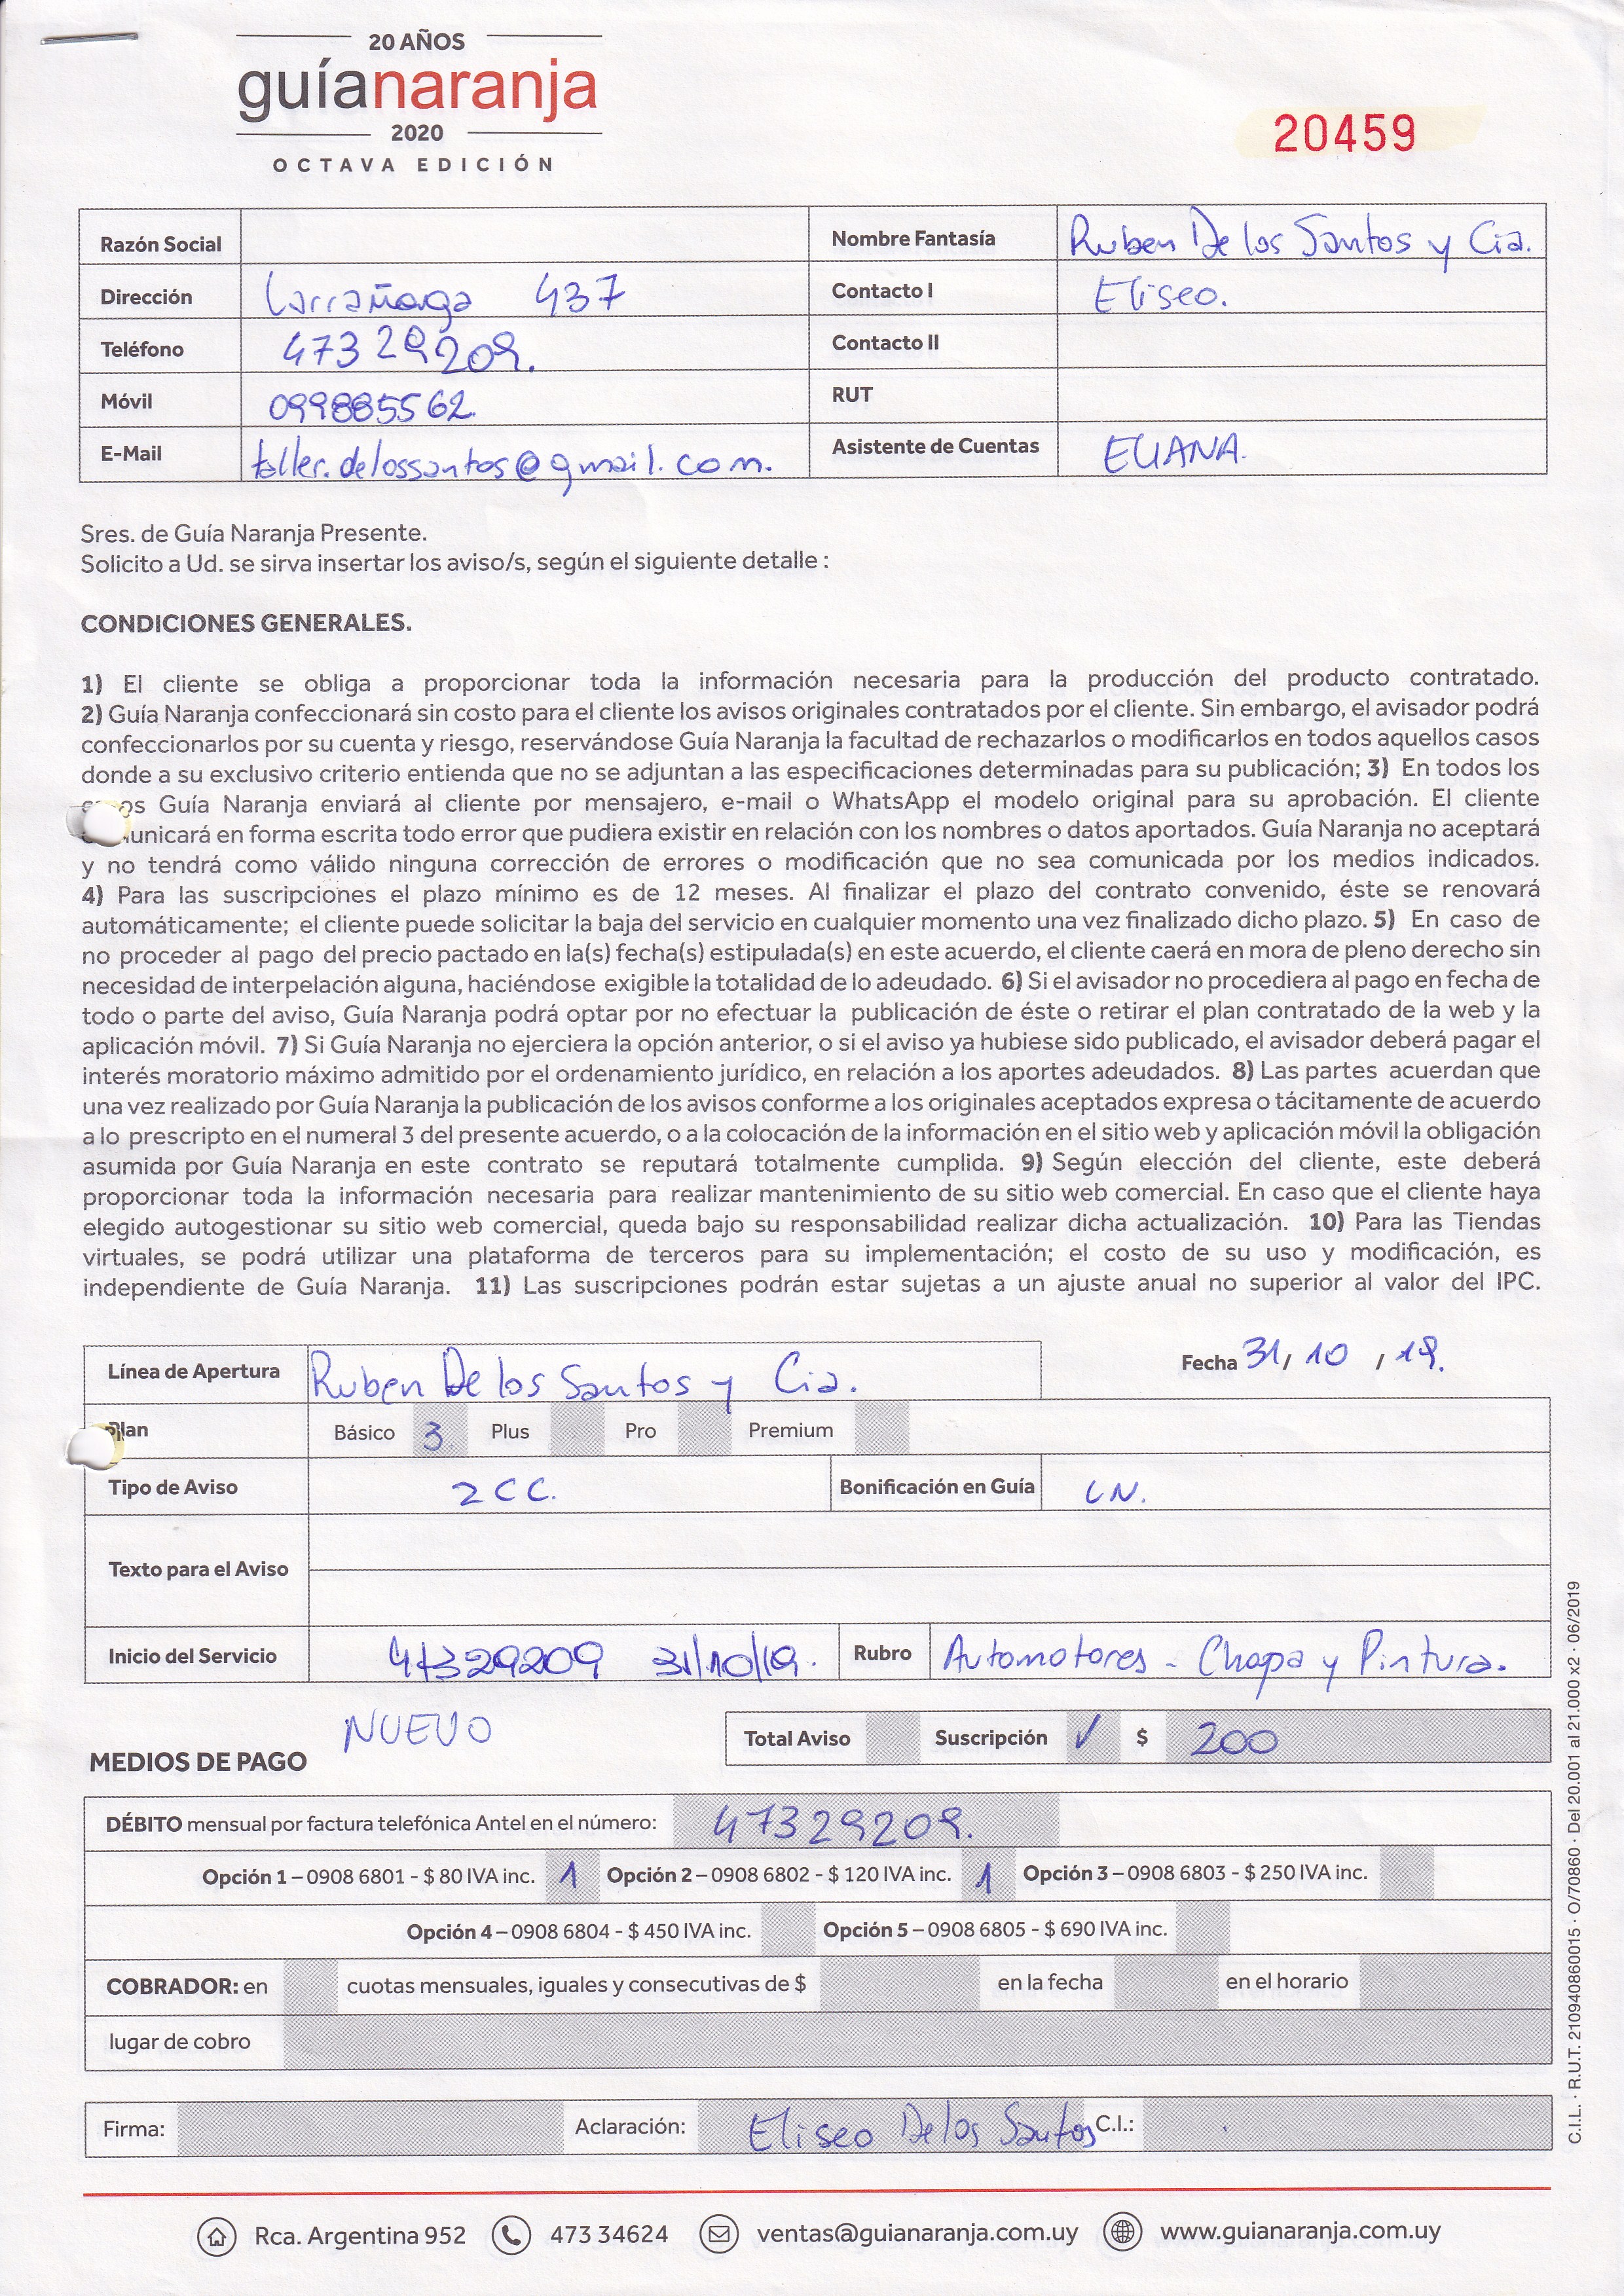 20 AÑOS
guíanaranja
2020
OCTAVA EDICIÓN
20459
Razón Social Nombre Fantasía Ruben De los Santos y Cia.
Dirección Larrañaga 437 Contacto I Eliseo.
Teléfono 473 29209. Contacto II
Móvil 099885562 RUT
E-Mail taller.delossantos@gmail.com. Asistente de Cuentas ELIANA.
Sres. de Guía Naranja Presente.
Solicito a Ud. se sirva insertar los aviso/s, según el siguiente detalle :
CONDICIONES GENERALES.
1) El cliente se obliga a proporcionar toda la información necesaria para la producción del producto contratado.
2) Guía Naranja confeccionará sin costo para el cliente los avisos originales contratados por el cliente. Sin embargo, el avisador podrá
confeccionarlos por su cuenta y riesgo, reservándose Guía Naranja la facultad de rechazarlos o modificarlos en todos aquellos casos
donde a su exclusivo criterio entienda que no se adjuntan a las especificaciones determinadas para su publicación; 3) En todos los
casos Guía Naranja enviará al cliente por mensajero, e-mail o WhatsApp el modelo original para su aprobación. El cliente
comunicará en forma escrita todo error que pudiera existir en relación con los nombres o datos aportados. Guía Naranja no aceptará
y no tendrá como válido ninguna corrección de errores o modificación que no sea comunicada por los medios indicados.
4) Para las suscripciones el plazo mínimo es de 12 meses. Al finalizar el plazo del contrato convenido, éste se renovará
automáticamente; el cliente puede solicitar la baja del servicio en cualquier momento una vez finalizado dicho plazo. 5) En caso de
no proceder al pago del precio pactado en la(s) fecha(s) estipulada(s) en este acuerdo, el cliente caerá en mora de pleno derecho sin
necesidad de interpelación alguna, haciéndose exigible la totalidad de lo adeudado. 6) Si el avisador no procediera al pago en fecha de
todo o parte del aviso, Guía Naranja podrá optar por no efectuar la publicación de éste o retirar el plan contratado de la web y la
aplicación móvil. 7) Si Guía Naranja no ejerciera la opción anterior, o si el aviso ya hubiese sido publicado, el avisador deberá pagar el
interés moratorio máximo admitido por el ordenamiento jurídico, en relación a los aportes adeudados. 8) Las partes acuerdan que
una vez realizado por Guía Naranja la publicación de los avisos conforme a los originales aceptados expresa o tácitamente de acuerdo
a lo prescripto en el numeral 3 del presente acuerdo, o a la colocación de la información en el sitio web y aplicación móvil la obligación
asumida por Guía Naranja en este contrato se reputará totalmente cumplida. 9) Según elección del cliente, este deberá
proporcionar toda la información necesaria para realizar mantenimiento de su sitio web comercial. En caso que el cliente haya
elegido autogestionar su sitio web comercial, queda bajo su responsabilidad realizar dicha actualización. 10) Para las Tiendas
virtuales, se podrá utilizar una plataforma de terceros para su implementación; el costo de su uso y modificación, es
independiente de Guía Naranja. 11) Las suscripciones podrán estar sujetas a un ajuste anual no superior al valor del IPC.
Línea de Apertura Ruben De los Santos y Cia. Fecha 31/ 10 / 19.
Plan Básico 3. Plus Pro Premium
Tipo de Aviso 2 CC. Bonificación en Guía LN.
Texto para el Aviso
Inicio del Servicio 47329209 31/10/19. Rubro Automotores - Chapa y Pintura.
NUEVO
Total Aviso Suscripción ✓ $ 200
MEDIOS DE PAGO
DÉBITO mensual por factura telefónica Antel en el número: 47329209.
Opción 1 – 0908 6801 - $ 80 IVA inc. 1 Opción 2 – 0908 6802 - $ 120 IVA inc. 1 Opción 3 – 0908 6803 - $ 250 IVA inc.
Opción 4 – 0908 6804 - $ 450 IVA inc. Opción 5 – 0908 6805 - $ 690 IVA inc.
COBRADOR: en cuotas mensuales, iguales y consecutivas de $ en la fecha en el horario
lugar de cobro
Firma: Aclaración: Eliseo De los Santos C.I.:
Rca. Argentina 952 473 34624 ventas@guianaranja.com.uy www.guianaranja.com.uy
C.I.L. · R.U.T. 210940860015 · O/70860 · Del 20.001 al 21.000 x2 · 06/2019